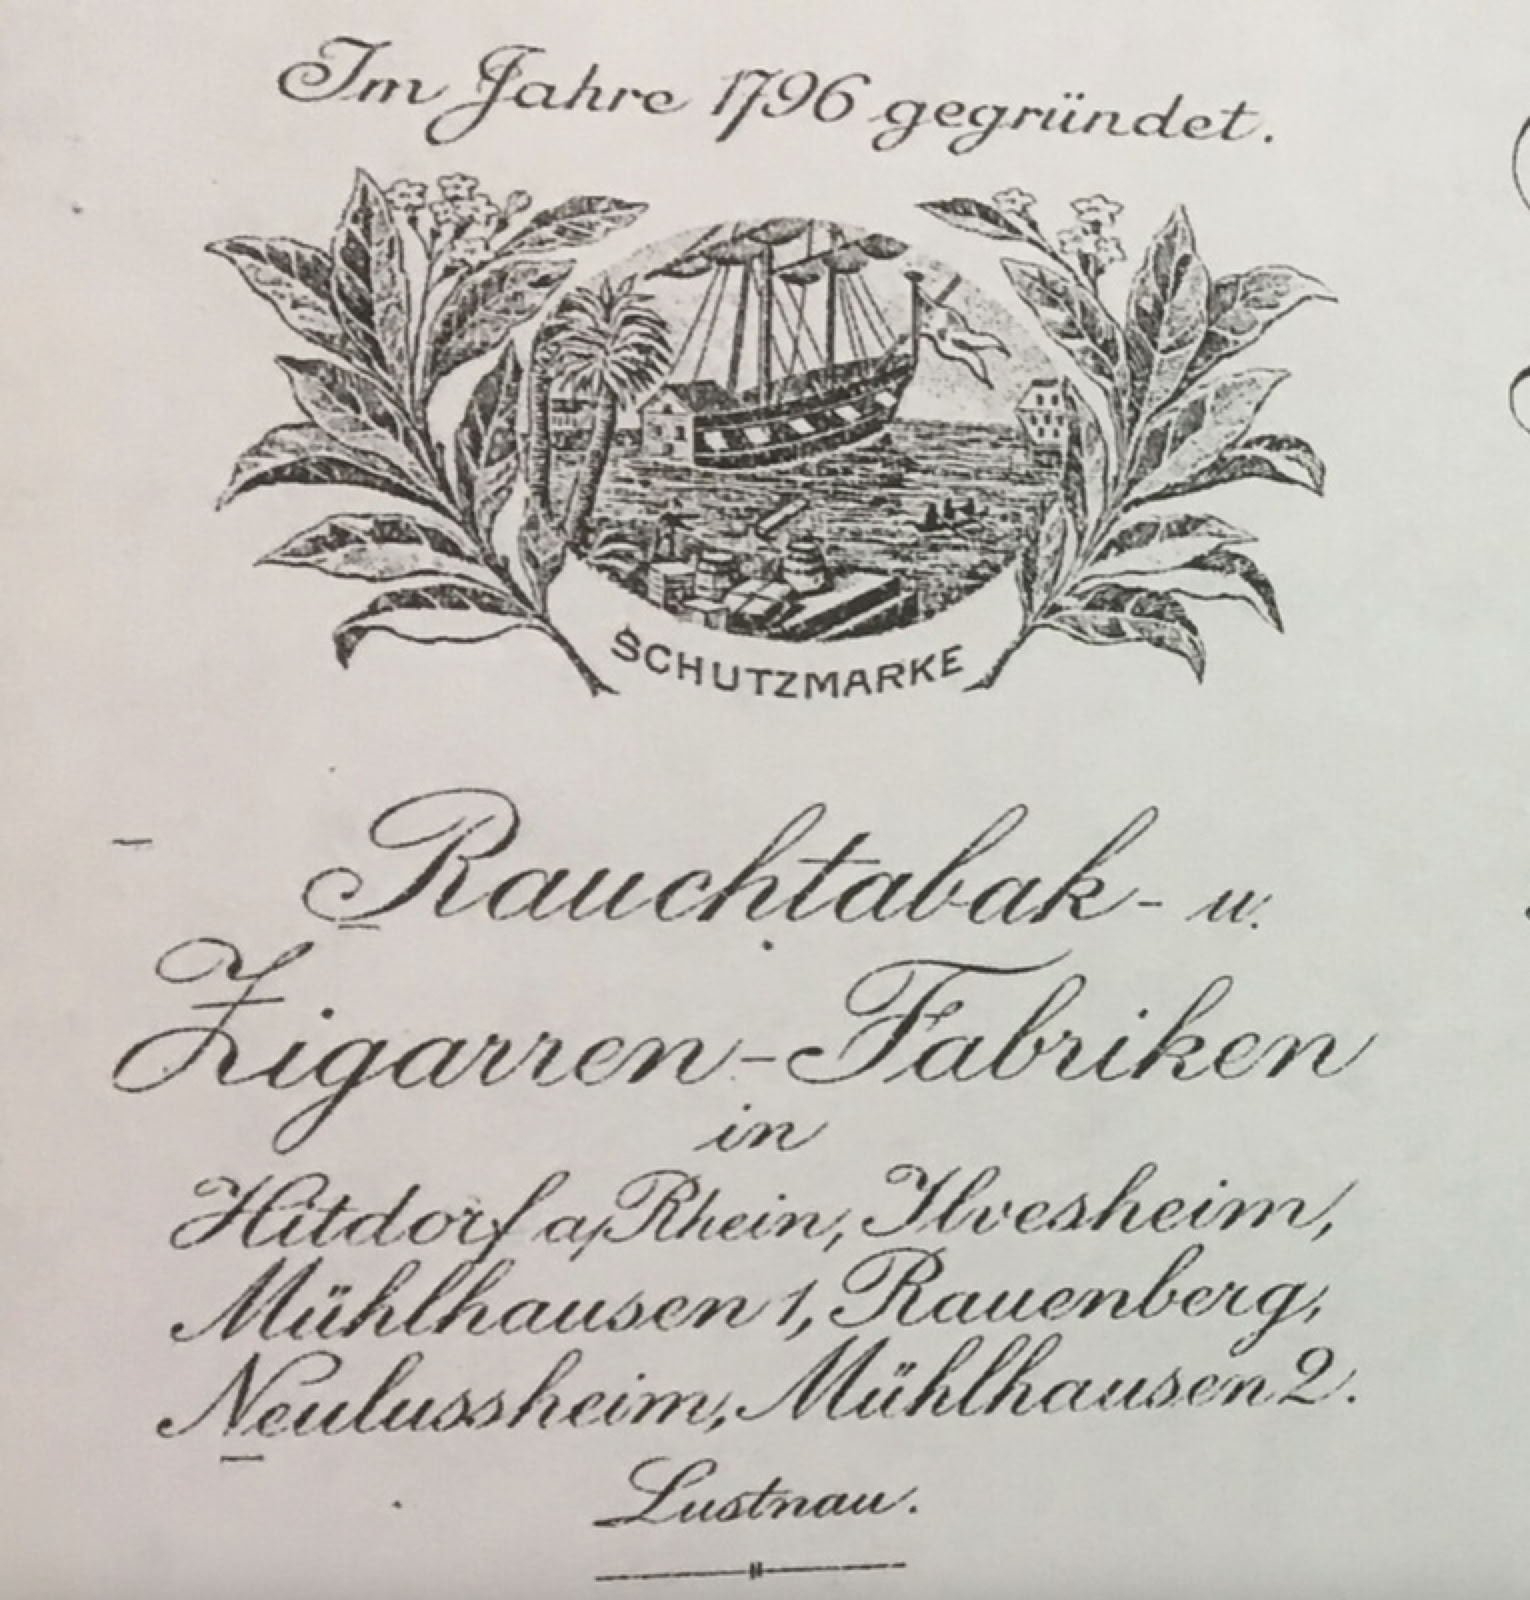 Im Jahre 1796 gegründet.
SCHUTZMARKE
Rauchtabak- u.
Zigarren-Fabriken
in
Hitdorf a/Rhein, Ilvesheim,
Mühlhausen 1, Rauenberg,
Neulussheim, Mühlhausen 2.
Lustnau.